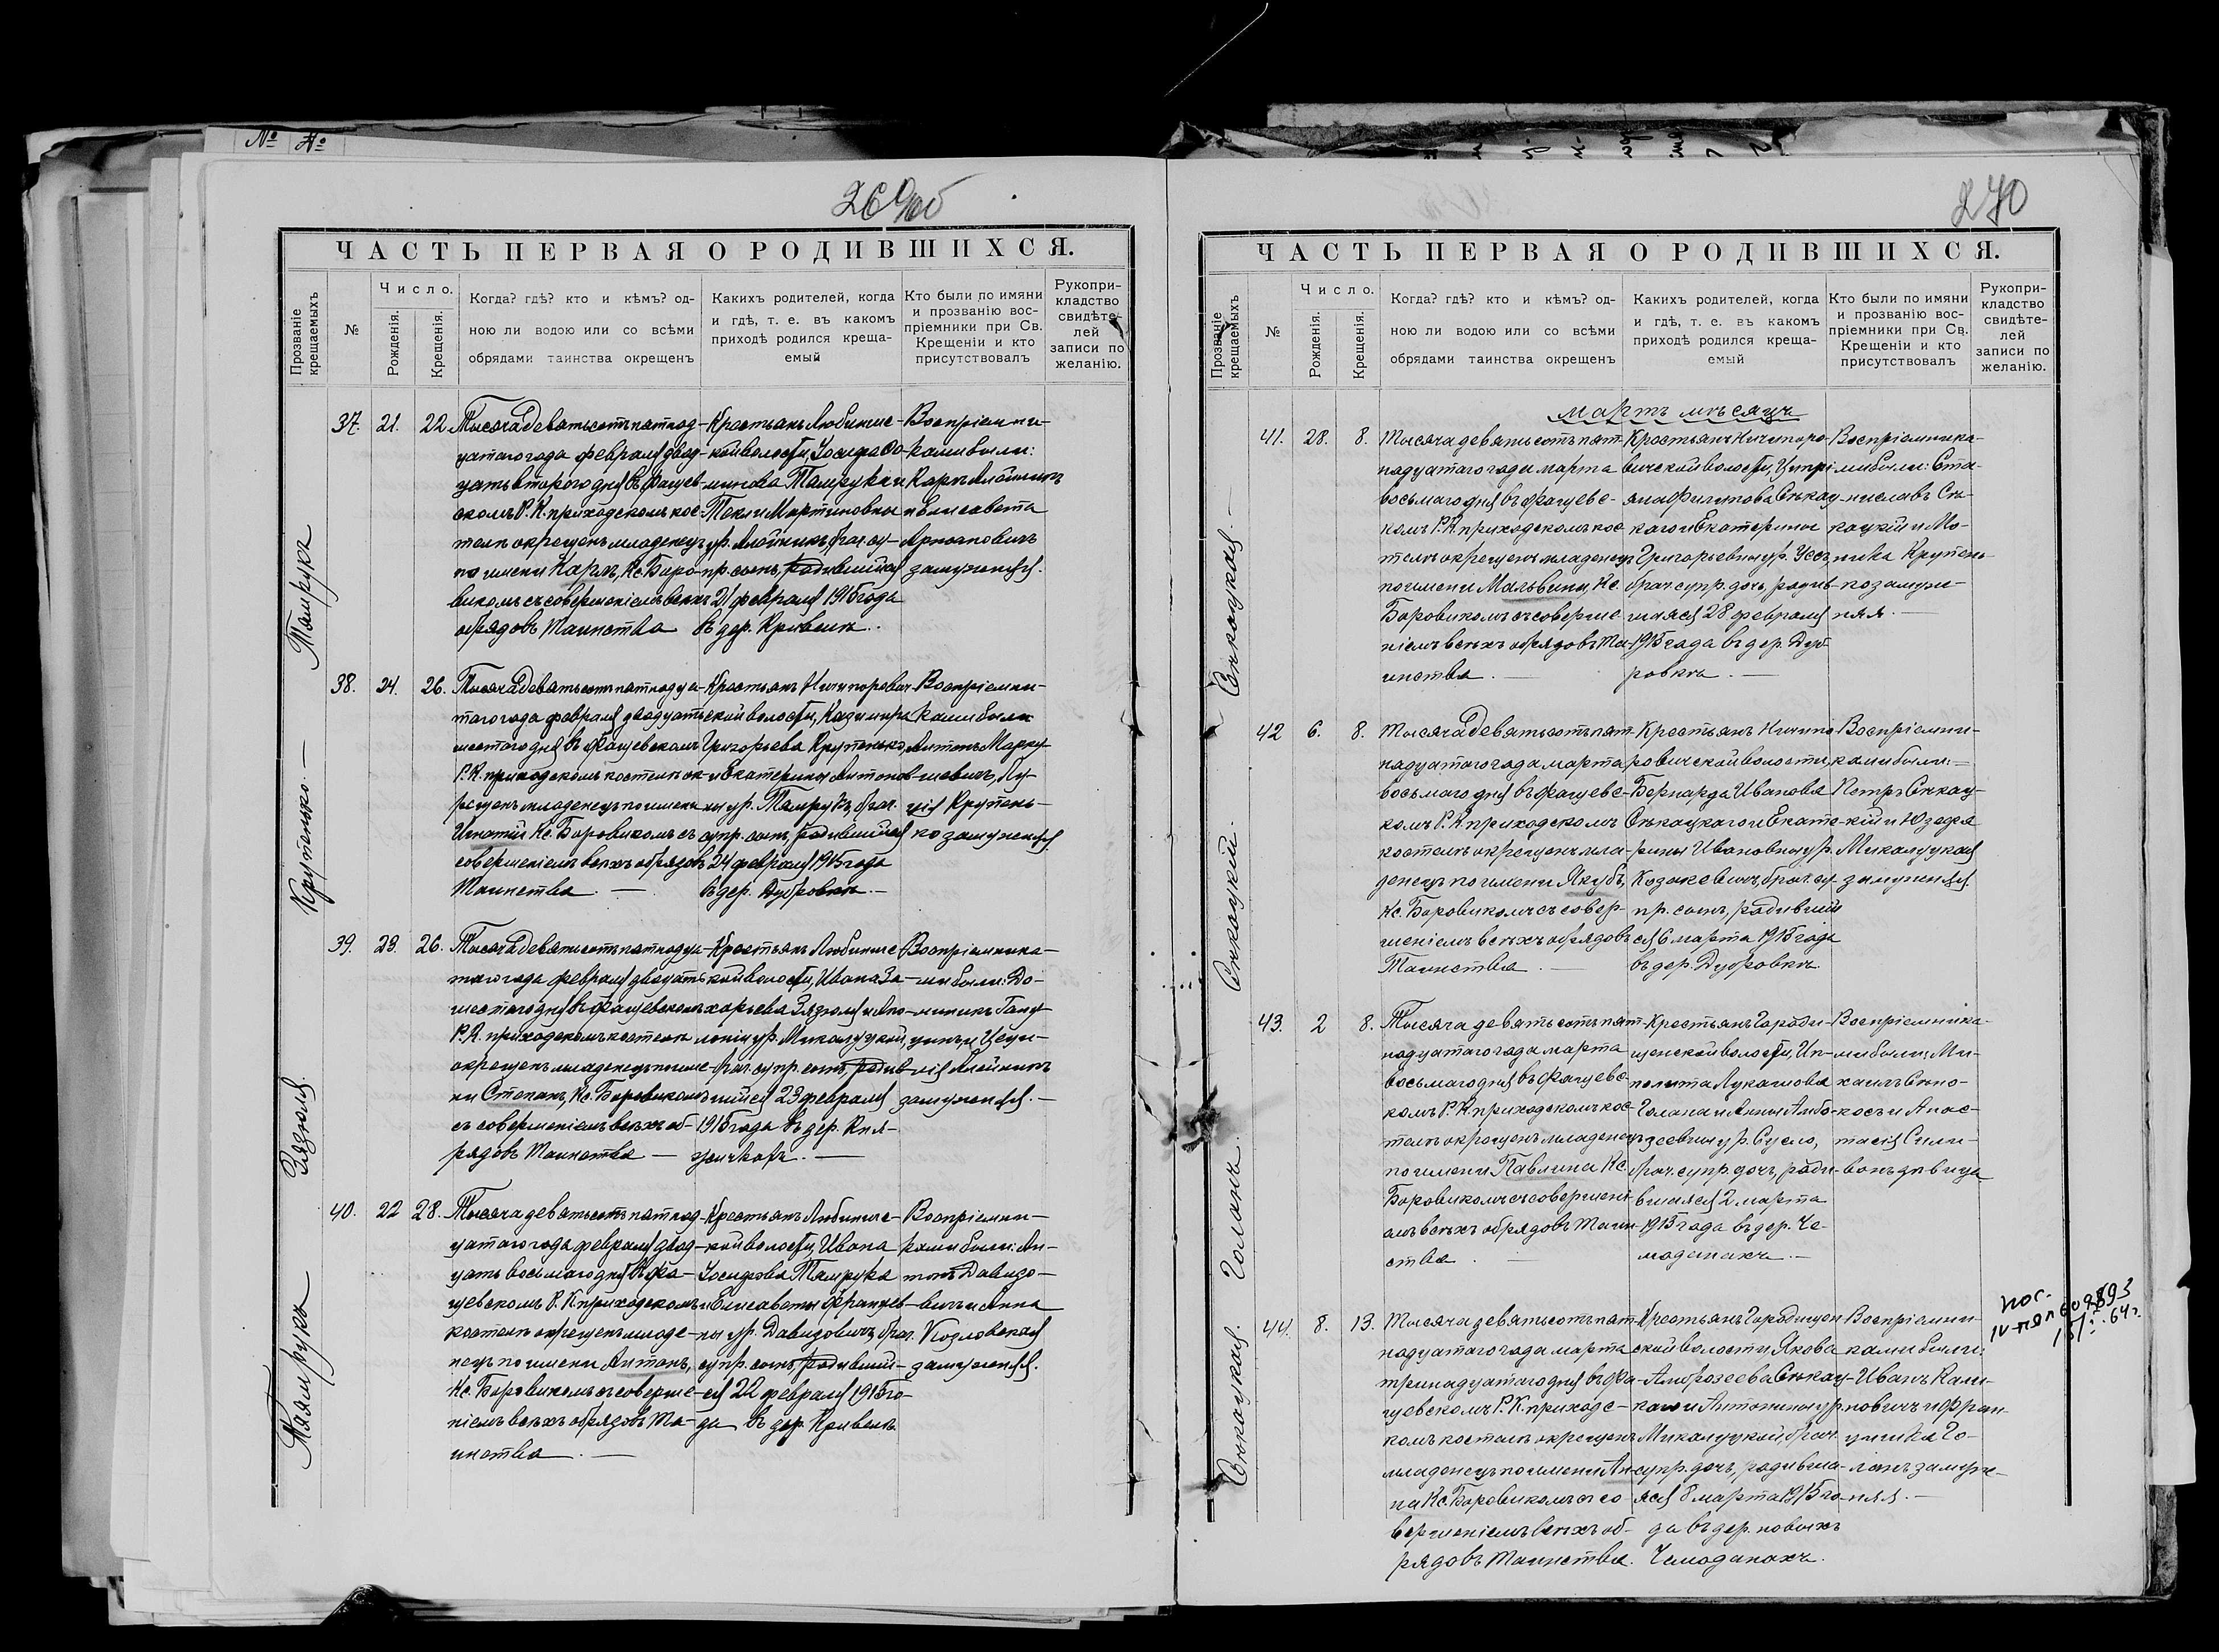 № №
269об
ЧАСТЬ ПЕРВАЯ О РОДИВШИХСЯ.
Прозваніе крещаемыхъ
№
Число.
Рожденія.
Крещенія.
Когда? гдѣ? кто и кѣмъ? од-
ною ли водою или со всѣми
обрядами таинства окрещенъ
Какихъ родителей, когда
и гдѣ, т. е. въ какомъ
приходѣ родился креща-
емый
Кто были по имяни
и прозванію вос-
пріемники при Св.
Крещеніи и кто
присутствовалъ
Рукопри-
кладство
свидѣте-
лей
записи по
желанію.
Тамрукъ
37. 21. 22.
Тысяча девятьсотъ пятнад-
цатаго года февраля двад-
цать второго дня въ Фащев-
скомъ Р. К. приходскомъ кос-
телѣ окрещенъ младенецъ
по имени Карлъ, Кс. Боро-
викомъ съ совершеніемъ всѣхъ
обрядовъ Таинства
Крестьянъ Любинис-
кой волости, Іосифа До-
миника Тамрука и
Текли Мартиновны
ур. Алейникъ, брач. су-
пр. сынъ, родившійся
21 февраля 1915 года
въ дер. Кривель.
Воспріемни-
ками были:
Карлъ Алейникъ
и Елисавета
Арцюховичъ
замужняя.
Крупенько.
38. 24. 26.
Тысяча девятьсотъ пятнадца-
таго года февраля двадцать
шестого дня въ Фащевскомъ
Р. К. приходскомъ костелѣ ок-
рещенъ младенецъ по имени
Игнатій Кс. Боровикомъ съ
совершеніемъ всѣхъ обрядовъ
Таинства.
Крестьянъ Ничипорович-
ской волости, Казимира
Григорьева Крупенько
и Екатерины Антонов-
ны ур. Тамрукъ, брач.
супр. сынъ, родившійся
24 февраля 1915 года
въ дер. Дубровкѣ.
Воспріемни-
ками были
Антонъ Марку-
шевичъ, Лу-
ція Крупень-
ко замужняя.
Зязюля.
39. 23. 26.
Тысяча девятьсотъ пятнадца-
таго года февраля двадцать
шестого дня въ Фащевскомъ
Р. К. приходскомъ костелѣ
окрещенъ младенецъ по име-
ни Степанъ, Кс. Боровикомъ
съ совершеніемъ всѣхъ об-
рядовъ Таинства
Крестьянъ Любинис-
кой волости, Ивана За-
харьева Зязюля и Апо-
лоніи ур. Микалуцкой,
брач. супр. сынъ, родив-
шійся 23 февраля
1915 года въ дер. Кня-
Воспріемника-
ми были: До-
миникъ
и Цеци-
лія Алейникъ
замужняя.
Тамрукъ
40. 22 28.
Тысяча девятьсотъ пятнад-
цатаго года февраля двад-
цать восьмаго дня въ Фа-
щевскомъ Р. К. приходскомъ
костелѣ окрещенъ младе-
нецъ по имени Антонъ,
Кс. Боровикомъ съ соверше-
ніемъ всѣхъ обрядовъ Та-
инства.
Крестьянъ Любинис-
кой волости, Ивана
Іосифова Тамрука
и Елисаветы Францев-
ны ур. Давидовичъ, брач.
супр. сынъ, родивший-
ся 22 февраля 1915 го-
да въ дер. Кривель
Воспріемни-
ками были: Ан-
тонъ Давидо-
вичъ и Анна
Козловская
замужняя.
270
ЧАСТЬ ПЕРВАЯ О РОДИВШИХСЯ.
Прозваніе крещаемыхъ
№
Число.
Рожденія.
Крещенія.
Когда? гдѣ? кто и кѣмъ? од-
ною ли водою или со всѣми
обрядами таинства окрещенъ
Какихъ родителей, когда
и гдѣ, т. е. въ какомъ
приходѣ родился креща-
емый
Кто были по имяни
и прозванію вос-
пріемники при Св.
Крещеніи и кто
присутствовалъ
Рукопри-
кладство
свидѣте-
лей
записи по
желанію.
Мартъ мѣсяцъ
Сѣкацкая.
41. 28. 8.
Тысяча девятьсотъ пят-
надцатаго года марта
восьмаго дня въ Фащевс-
комъ Р. К. приходскомъ кос-
телѣ окрещенъ младенецъ
по имени Мальвина, Кс.
Боровикомъ съ соверше-
ніемъ всѣхъ обрядовъ Та-
инства.
Крестьянъ Ничипоро-
вичской волости, Ципрі-
яна Филипова Сѣкац-
каго и Екатерины
Григорьевны ур. Усъ,
брач. супр. дочь, родив-
шаяся 28 февраля
1915 года въ дер. Дуб-
ровкѣ.
Воспріемника-
ми были: Ста-
ниславъ Сѣ-
кацкій и Мо-
ника Крупень-
ко замуж-
няя.
Сѣкацкій.
42 6. 8.
Тысяча девятьсотъ пят-
надцатаго года марта
восьмаго дня въ Фащевс-
комъ Р. К. приходскомъ
костелѣ окрещенъ мла-
денецъ по имени Якубъ,
Кс. Боровикомъ съ совер-
шеніемъ всѣхъ обрядовъ
Таинства.
Крестьянъ Ничипо-
ровичской волости,
Бернарда Иванова
Сѣкацкаго и Екате-
рины Ивановны ур.
Козакевичъ, брач. су-
пр. сынъ, родивший-
ся 6 марта 1915 года
въ дер. Дубровкѣ.
Воспріемни-
ками были:
Петръ Сѣкац-
кій и Юзефа
Микалуцкая
замужняя.
Голанъ.
43. 2 8.
Тысяча девятьсотъ пят-
надцатаго года марта
восьмаго дня въ Фащевс-
комъ Р. К. приходскомъ кос-
телѣ окрещенъ младенецъ
по имени Павлина Кс.
Боровикомъ съ совершені-
емъ всѣхъ обрядовъ Таин-
ства.
Крестьянъ Городи-
щенской волости, Ип-
полита Лукашова
Голана и Анны Амбо-
зеевны ур. Сусло,
брач. супр. дочь, роди-
вшаяся 2 марта
1915 года въ дер. Че-
моданахъ.
Воспріемника-
ми были: Ми-
хаилъ Сѣно-
косъ и Анас-
тасія Сили-
вонъ дѣвица
Сѣкацкая.
44. 8. 13.
Тысяча девятьсотъ пят-
надцатаго года марта
тринадцатаго дня въ Фа-
щевскомъ Р. К. приходс-
комъ костелѣ окрещенъ
младенецъ по имени Ан-
на Кс. Боровикомъ съ со-
вершеніемъ всѣхъ об-
рядовъ Таинства.
Крестьянъ Городищен-
ской волости Якова
Амброзеева Сѣкац-
каго и Антонины ур.
Микалуцкой, брач.
супр. дочь, родивша-
яся 8 марта 1915 го-
да въ дер. новыхъ
Чемоданахъ.
Воспріемни-
ками были:
Иванъ Кали-
новичъ и Фран-
цишка Го-
ланъ замуж-
няя.